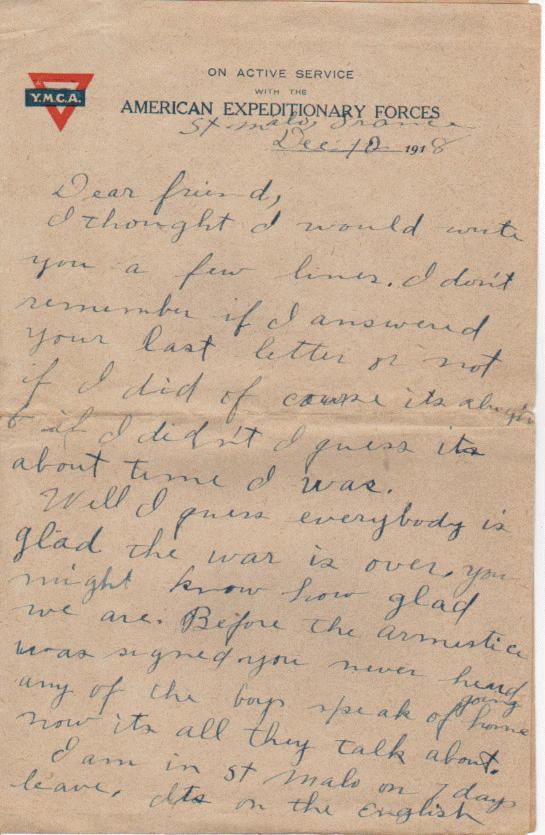 ON ACTIVE SERVICE
WITH THE
Y.M.C.A.
AMERICAN EXPEDITIONARY FORCES
St. Malo, France
Dec. 10 1918
Dear friend,
I thought I would write
you a few lines. I don't
remember if I answered
your last letter or not
if I did of course its
& if I didn't I guess its
about time I was.
Well I guess everybody is
glad the war is over, you
might know how glad
we are. Before the armestice
was signed you never heard
any of the boys speak of going home
now its all they talk about.
I am in St Malo on 7 days
leave. Its on the English